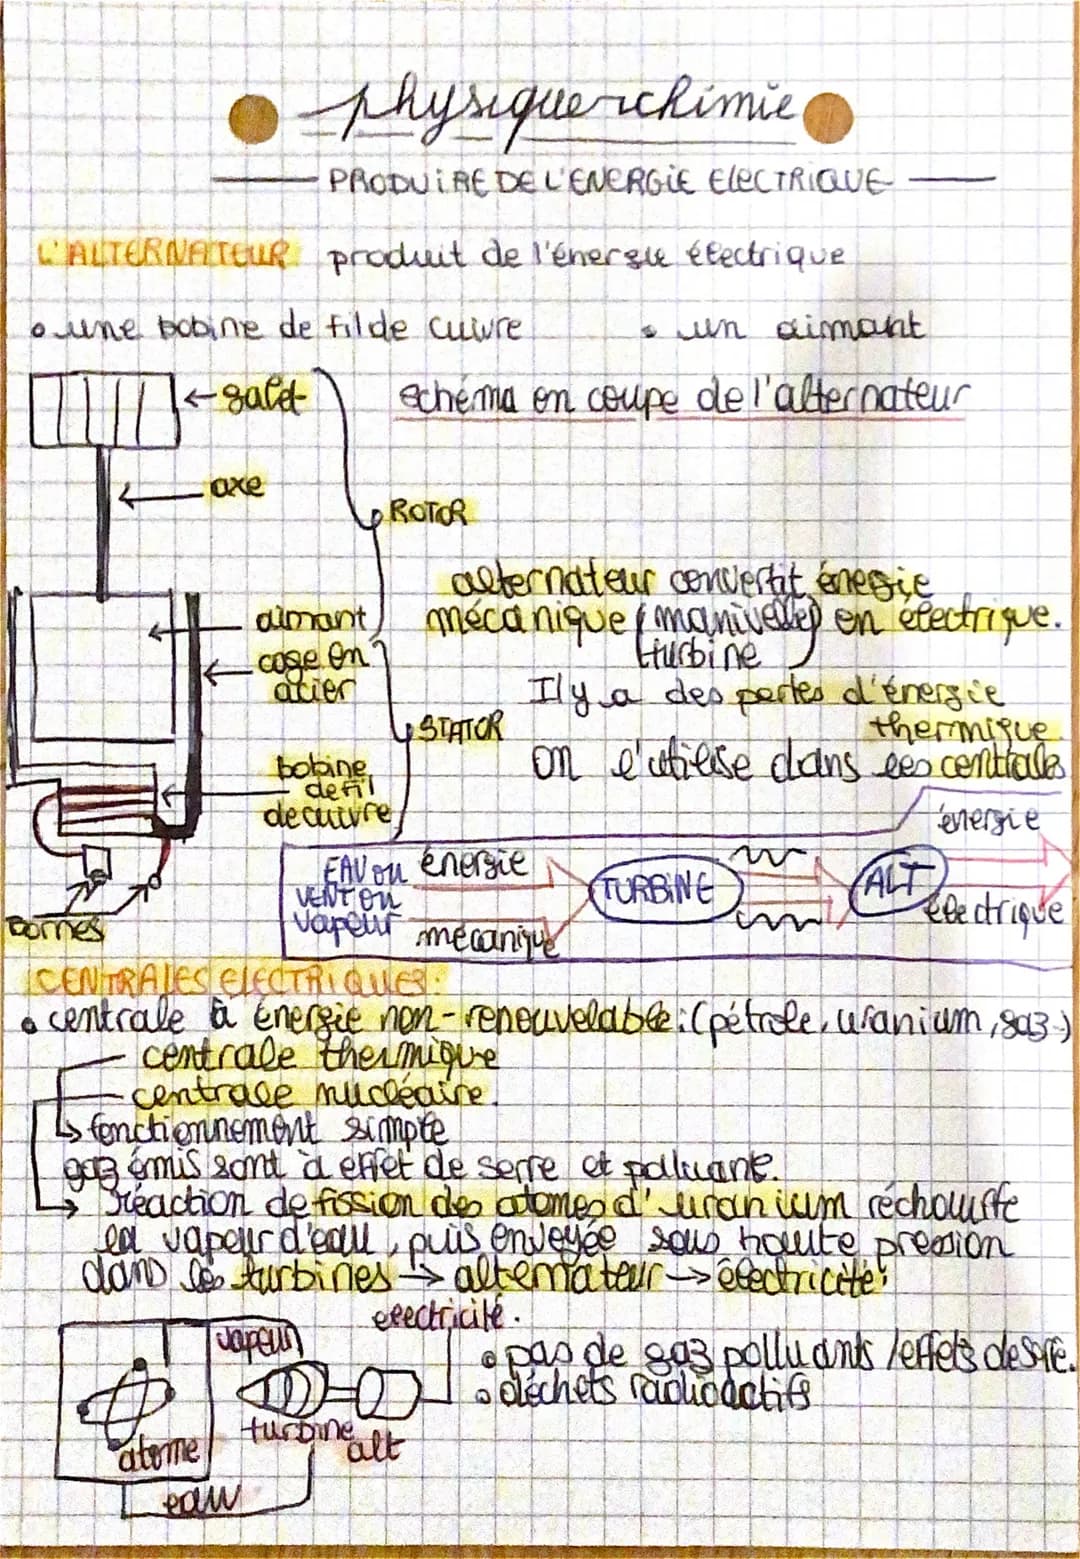 physique-chimie
PRODUIRE DE L'ENERGIE ElECTRIQUE
L'ALTERNATEUR produit de l'énergie électrique
• une bobine de fil de cuivre • un aimant
schéma en coupe de l'alternateur
galet
axe
ROTOR
alternateur convertit énergie
mécanique (manivelle) en électrique.
turbine
aimant
cage en
acier
Il y a des pertes d'énergie
thermique
STATOR
on l'utilise dans les centrales
bobine
de fil
de cuivre
bornes
EAU ou
VENT ou
vapeur
énergie
mécanique
TURBINE
ALT
énergie
électrique
CENTRALES ElECTRIQUES:
• centrale à énergie non-renouvelable: (pétrole, uranium, gaz)
centrale thermique
centrale nucléaire.
fonctionnement simple
gaz émis sont à effet de serre et polluant.
réaction de fission des atomes d'uranium réchauffe
la vapeur d'eau, puis envoyée sous haute pression
dans les turbines → alternateur → électricité.
électricité.
vapeur
• pas de gaz polluants / effets de serre.
• déchets radioactifs
turbine
alt
atome
eau